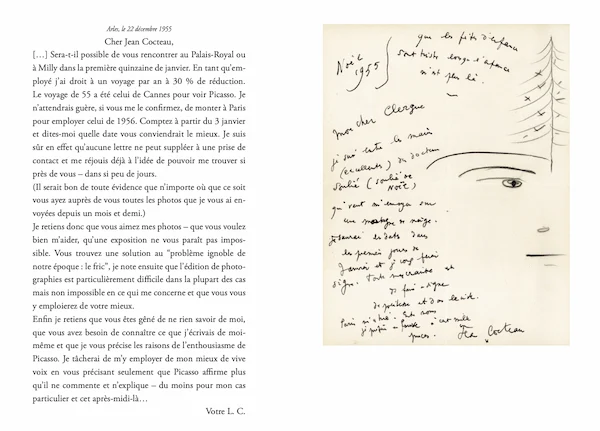 Arles, le 22 décembre 1955
Cher Jean Cocteau,
[…] Sera-t-il possible de vous rencontrer au Palais-Royal ou
à Milly dans la première quinzaine de janvier. En tant qu'em-
ployé j'ai droit à un voyage par an à 30 % de réduction.
Le voyage de 55 a été celui de Cannes pour voir Picasso. Je
n'attendrais guère, si vous me le confirmez, de monter à Paris
pour employer celui de 1956. Comptez à partir du 3 janvier
et dites-moi quelle date vous conviendrait le mieux. Je suis
sûr en effet qu'aucune lettre ne peut suppléer à une prise de
contact et me réjouis déjà à l'idée de pouvoir me trouver si
près de vous – dans si peu de jours.
(Il serait bon de toute évidence que n'importe où que ce soit
vous ayez auprès de vous toutes les photos que je vous ai en-
voyées depuis un mois et demi.)
Je retiens donc que vous aimez mes photos – que vous voulez
bien m'aider, qu'une exposition ne vous paraît pas impos-
sible. Vous trouvez une solution au "problème ignoble de
notre époque : le fric", je note ensuite que l'édition de photo-
graphies est particulièrement difficile dans la plupart des cas
mais non impossible en ce qui me concerne et que vous vous
y emploierez de votre mieux.
Enfin je retiens que vous êtes gêné de ne rien savoir de moi,
que vous avez besoin de connaître ce que j'écrivais de moi-
même et que je vous précise les raisons de l'enthousiasme de
Picasso. Je tâcherai de m'y employer de mon mieux de vive
voix en vous précisant seulement que Picasso affirme plus
qu'il ne commente et n'explique – du moins pour mon cas
particulier et cet après-midi-là…
Votre L. C.
Noël
1955
que les fêtes d'enfance
sont tristes lorsque l'enfance
n'est plus là.
mon cher Clergue
je suis entre les mains
(excellentes) du docteur
Soulié (soulié de
Noël)
qui veut m'envoyer sur
une montagne de neige.
Je saurai les dates dans
les premiers jours de
Janvier et je vous ferai
signe. Toute ma crainte est
de faire
de
Paris m'a tué.
Jean Cocteau